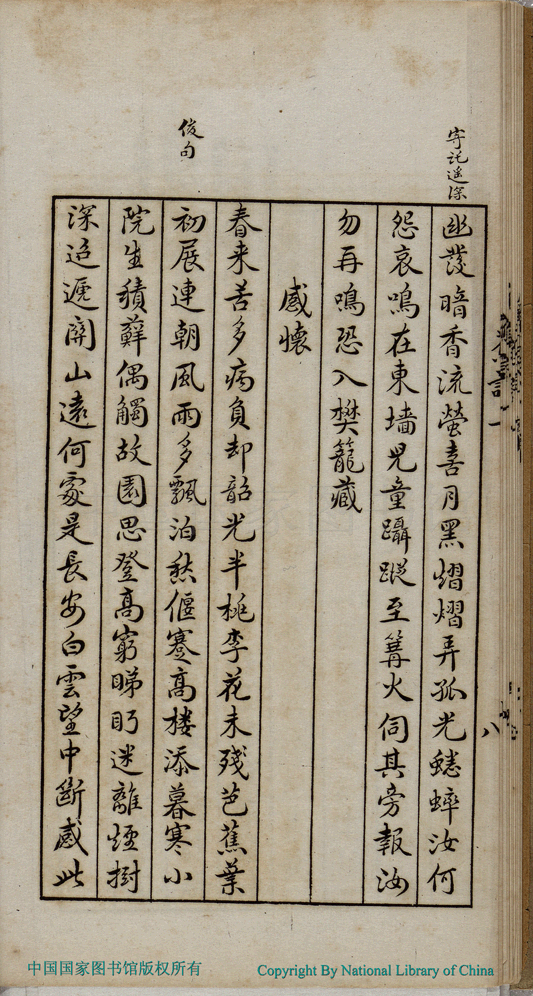 寄託遥深
幽叢暗香流螢喜月黑熠熠弄孤光蟋蟀汝何
怨哀鳴在東墻兒童躡蹤至篝火伺其旁報汝
勿再鳴恐入樊籠藏
感懷
春来苦多病負却韶光半桃李花未殘芭蕉葉
俊句
初展連朝風雨多飄泊愁偃蹇高楼添暮寒小
院生積蘚偶觸故園思登高窮睇眄迷離煙樹
深迢遞關山遠何處是長安白雲望中斷感此
八
中国国家图书馆版权所有
Copyright By National Library of China